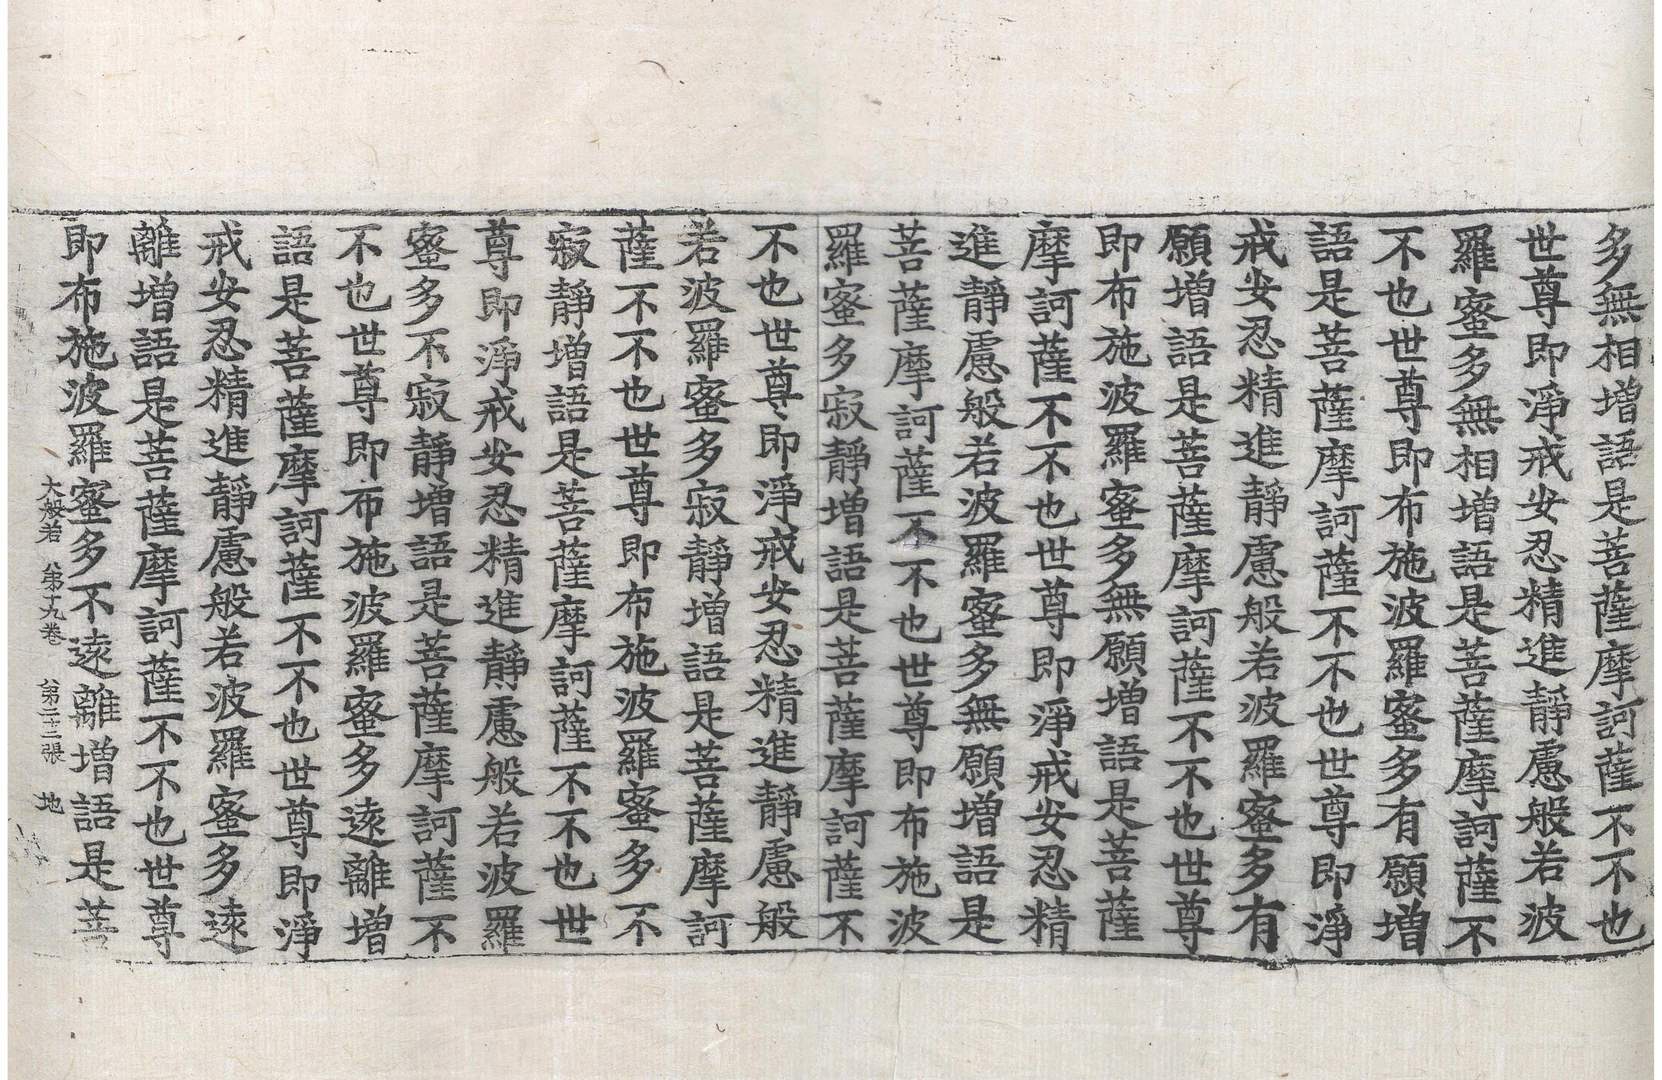 多無相增語是菩薩摩訶薩不不也
世尊即淨戒安忍精進靜慮般若波
羅蜜多無相增語是菩薩摩訶薩不
不也世尊即布施波羅蜜多有願增
語是菩薩摩訶薩不不也世尊即淨
戒安忍精進靜慮般若波羅蜜多有
願增語是菩薩摩訶薩不不也世尊
即布施波羅蜜多無願增語是菩薩
摩訶薩不不也世尊即淨戒安忍精
進靜慮般若波羅蜜多無願增語是
菩薩摩訶薩不不也世尊即布施波
羅蜜多寂靜增語是菩薩摩訶薩不
不也世尊即淨戒安忍精進靜慮般
若波羅蜜多寂靜增語是菩薩摩訶
薩不不也世尊即布施波羅蜜多不
寂靜增語是菩薩摩訶薩不不也世
尊即淨戒安忍精進靜慮般若波羅
蜜多不寂靜增語是菩薩摩訶薩不
不也世尊即布施波羅蜜多遠離增
語是菩薩摩訶薩不不也世尊即淨
戒安忍精進靜慮般若波羅蜜多遠
離增語是菩薩摩訶薩不不也世尊
即布施波羅蜜多不遠離增語是菩
大般若 第十九卷 第二十二張 地